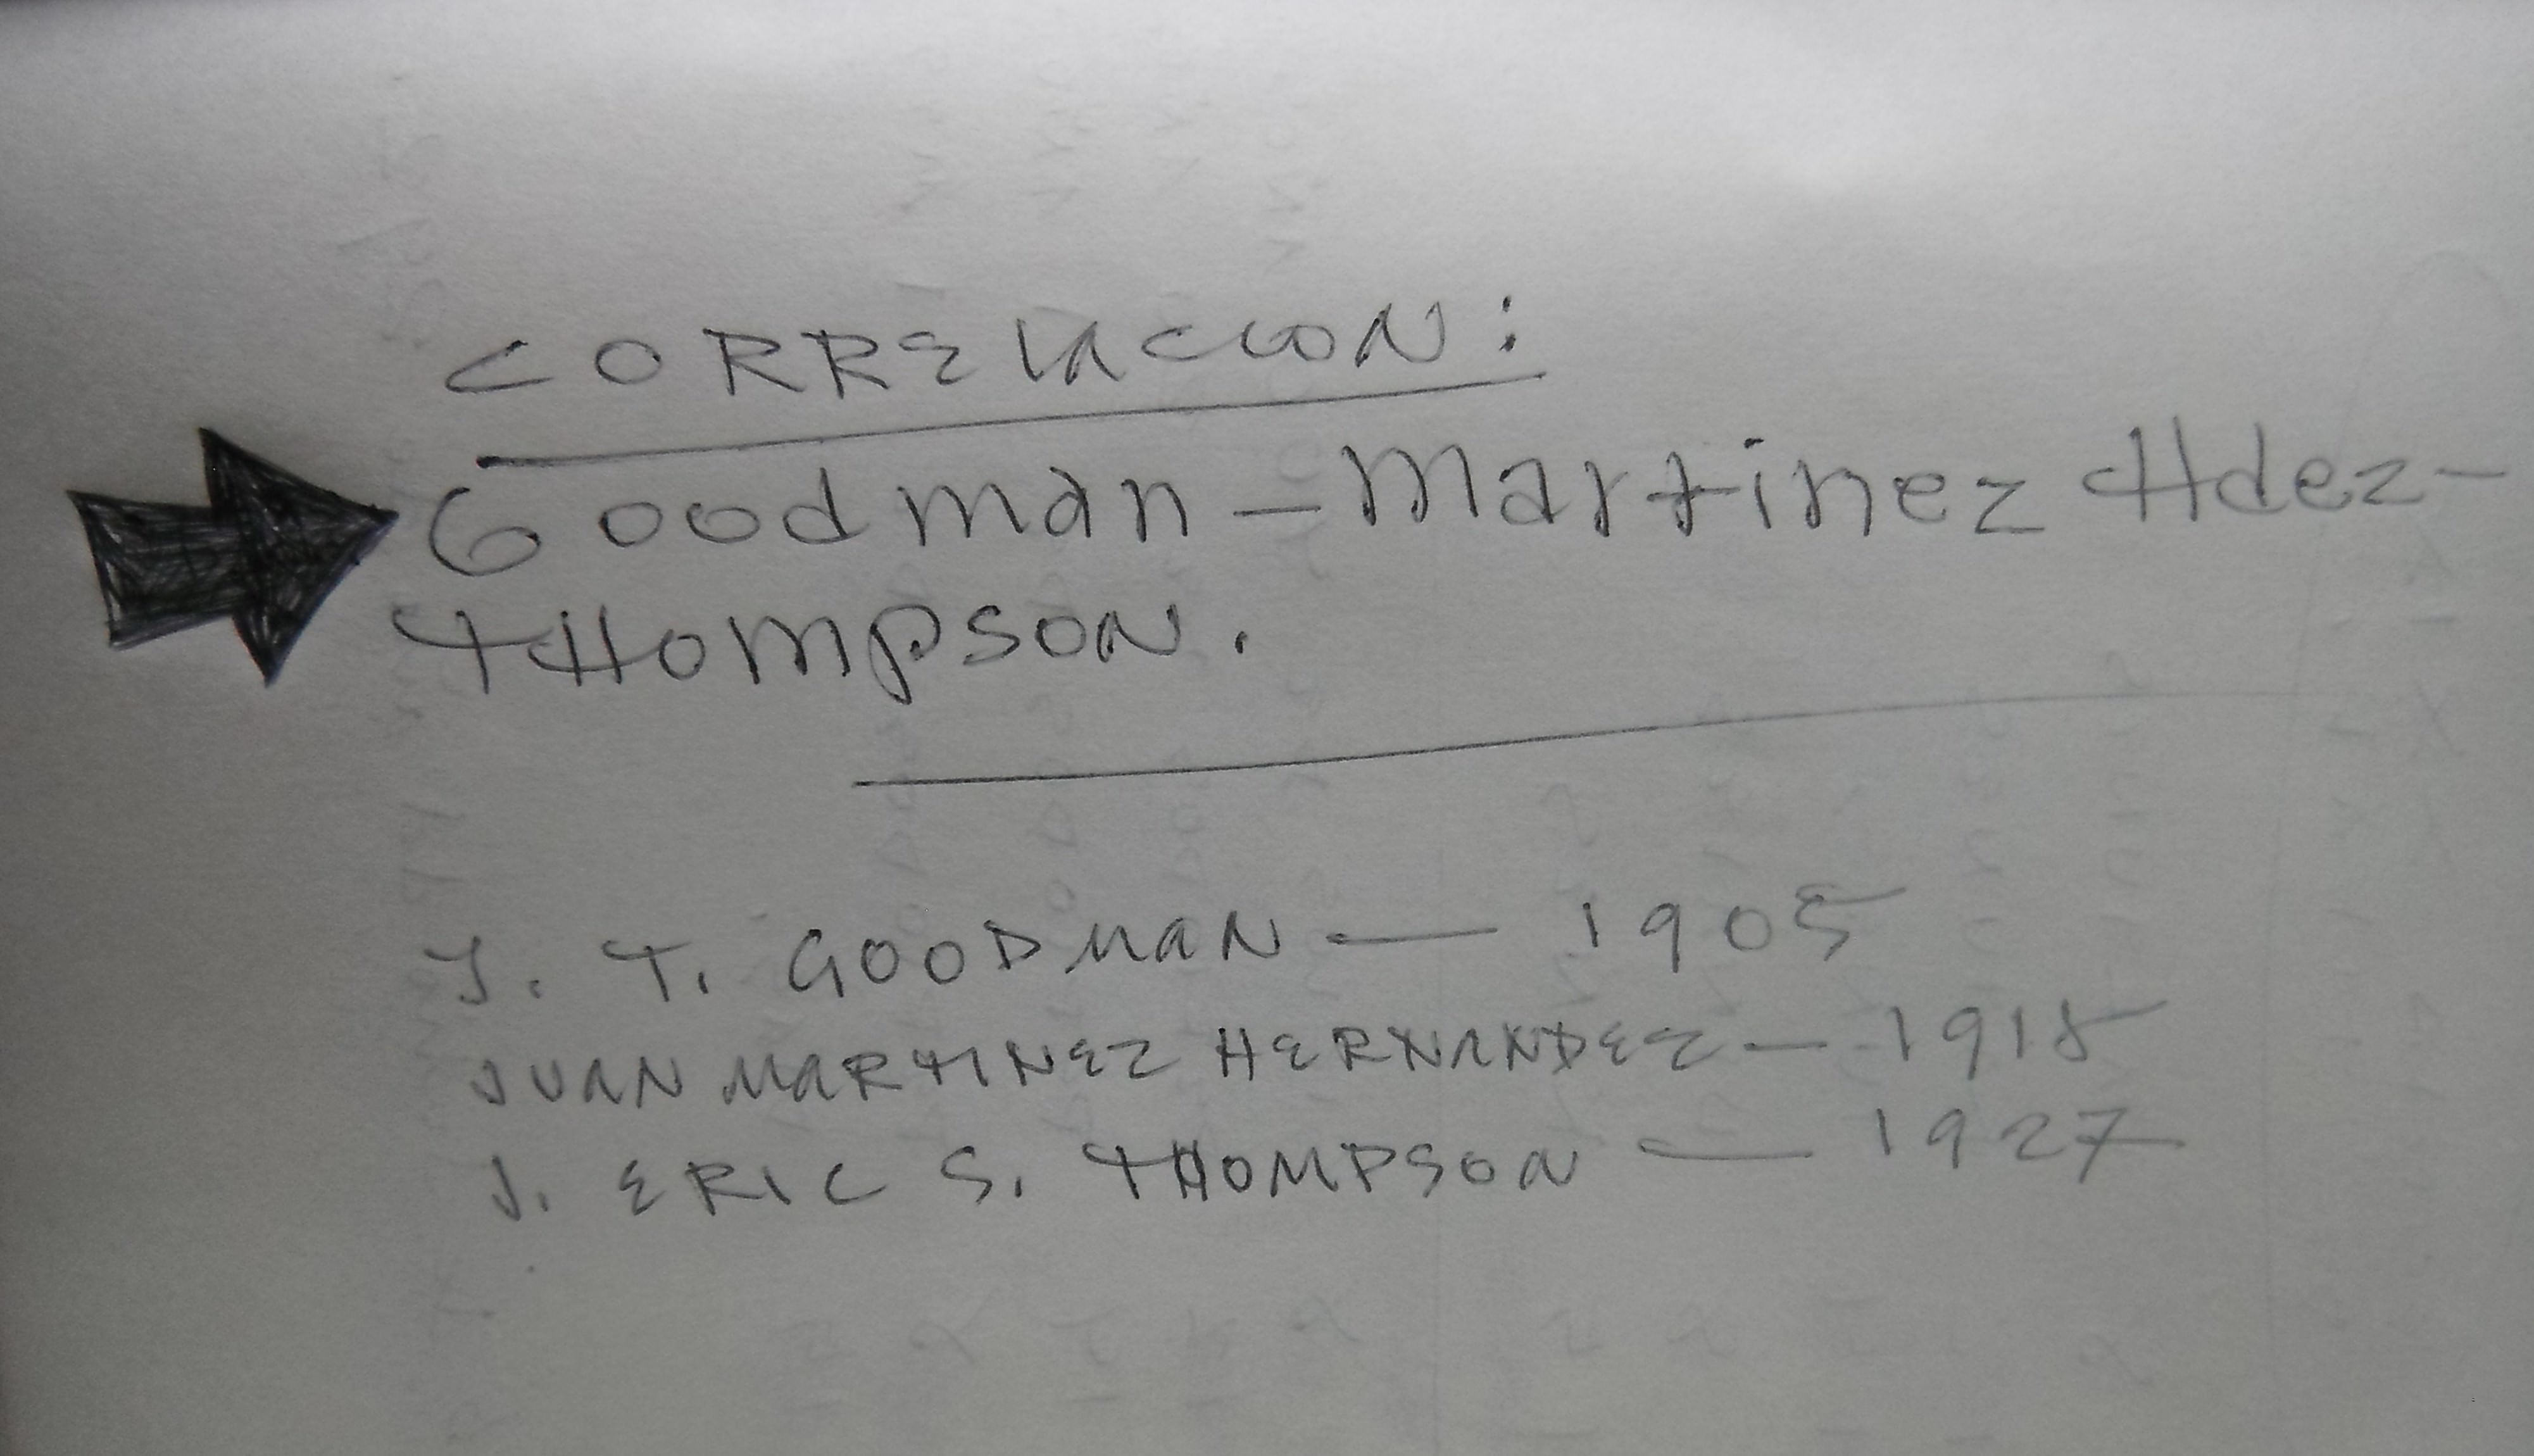 CORRELACION:
Goodman - Martinez Hdez-
THOMPSON.
J. T. GOODMAN — 1905
JUAN MARTINEZ HERNANDEZ — 1918
J. ERIC S. THOMPSON — 1927